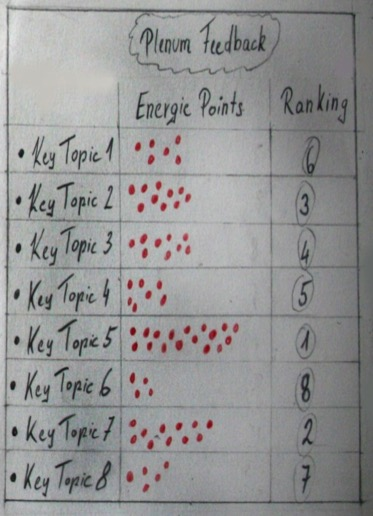 Plenum Feedback
Energic Points Ranking
• Key Topic 1 6
• Key Topic 2 3
• Key Topic 3 4
• Key Topic 4 5
• Key Topic 5 1
• Key Topic 6 8
• Key Topic 7 2
• Key Topic 8 7